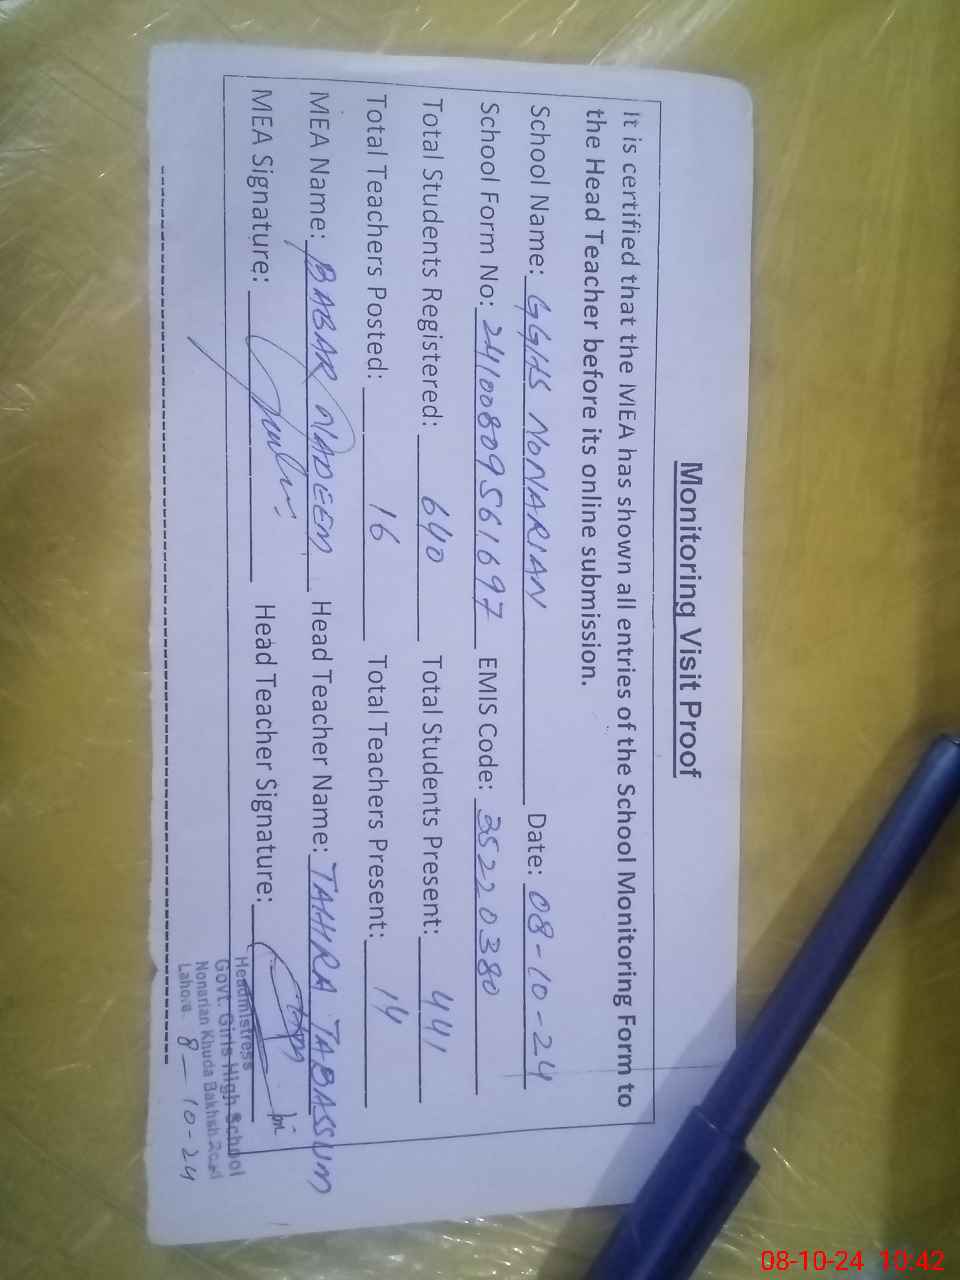 Monitoring Visit Proof
It is certified that the MEA has shown all entries of the School Monitoring Form to
the Head Teacher before its online submission.
School Name: GGHS NONARIAN Date: 08-10-24
School Form No: 24100809561697 EMIS Code: 35220380
Total Students Registered: 640 Total Students Present: 441
Total Teachers Posted: 16 Total Teachers Present: 14
MEA Name: BABAR NADEEM Head Teacher Name: TAHIRA TABASSUM
MEA Signature: Head Teacher Signature:
Headmistress
Govt. Girls High School
Nonarian Khuda Bakhsh
Lahore 8-10-24
08-10-24 10:42